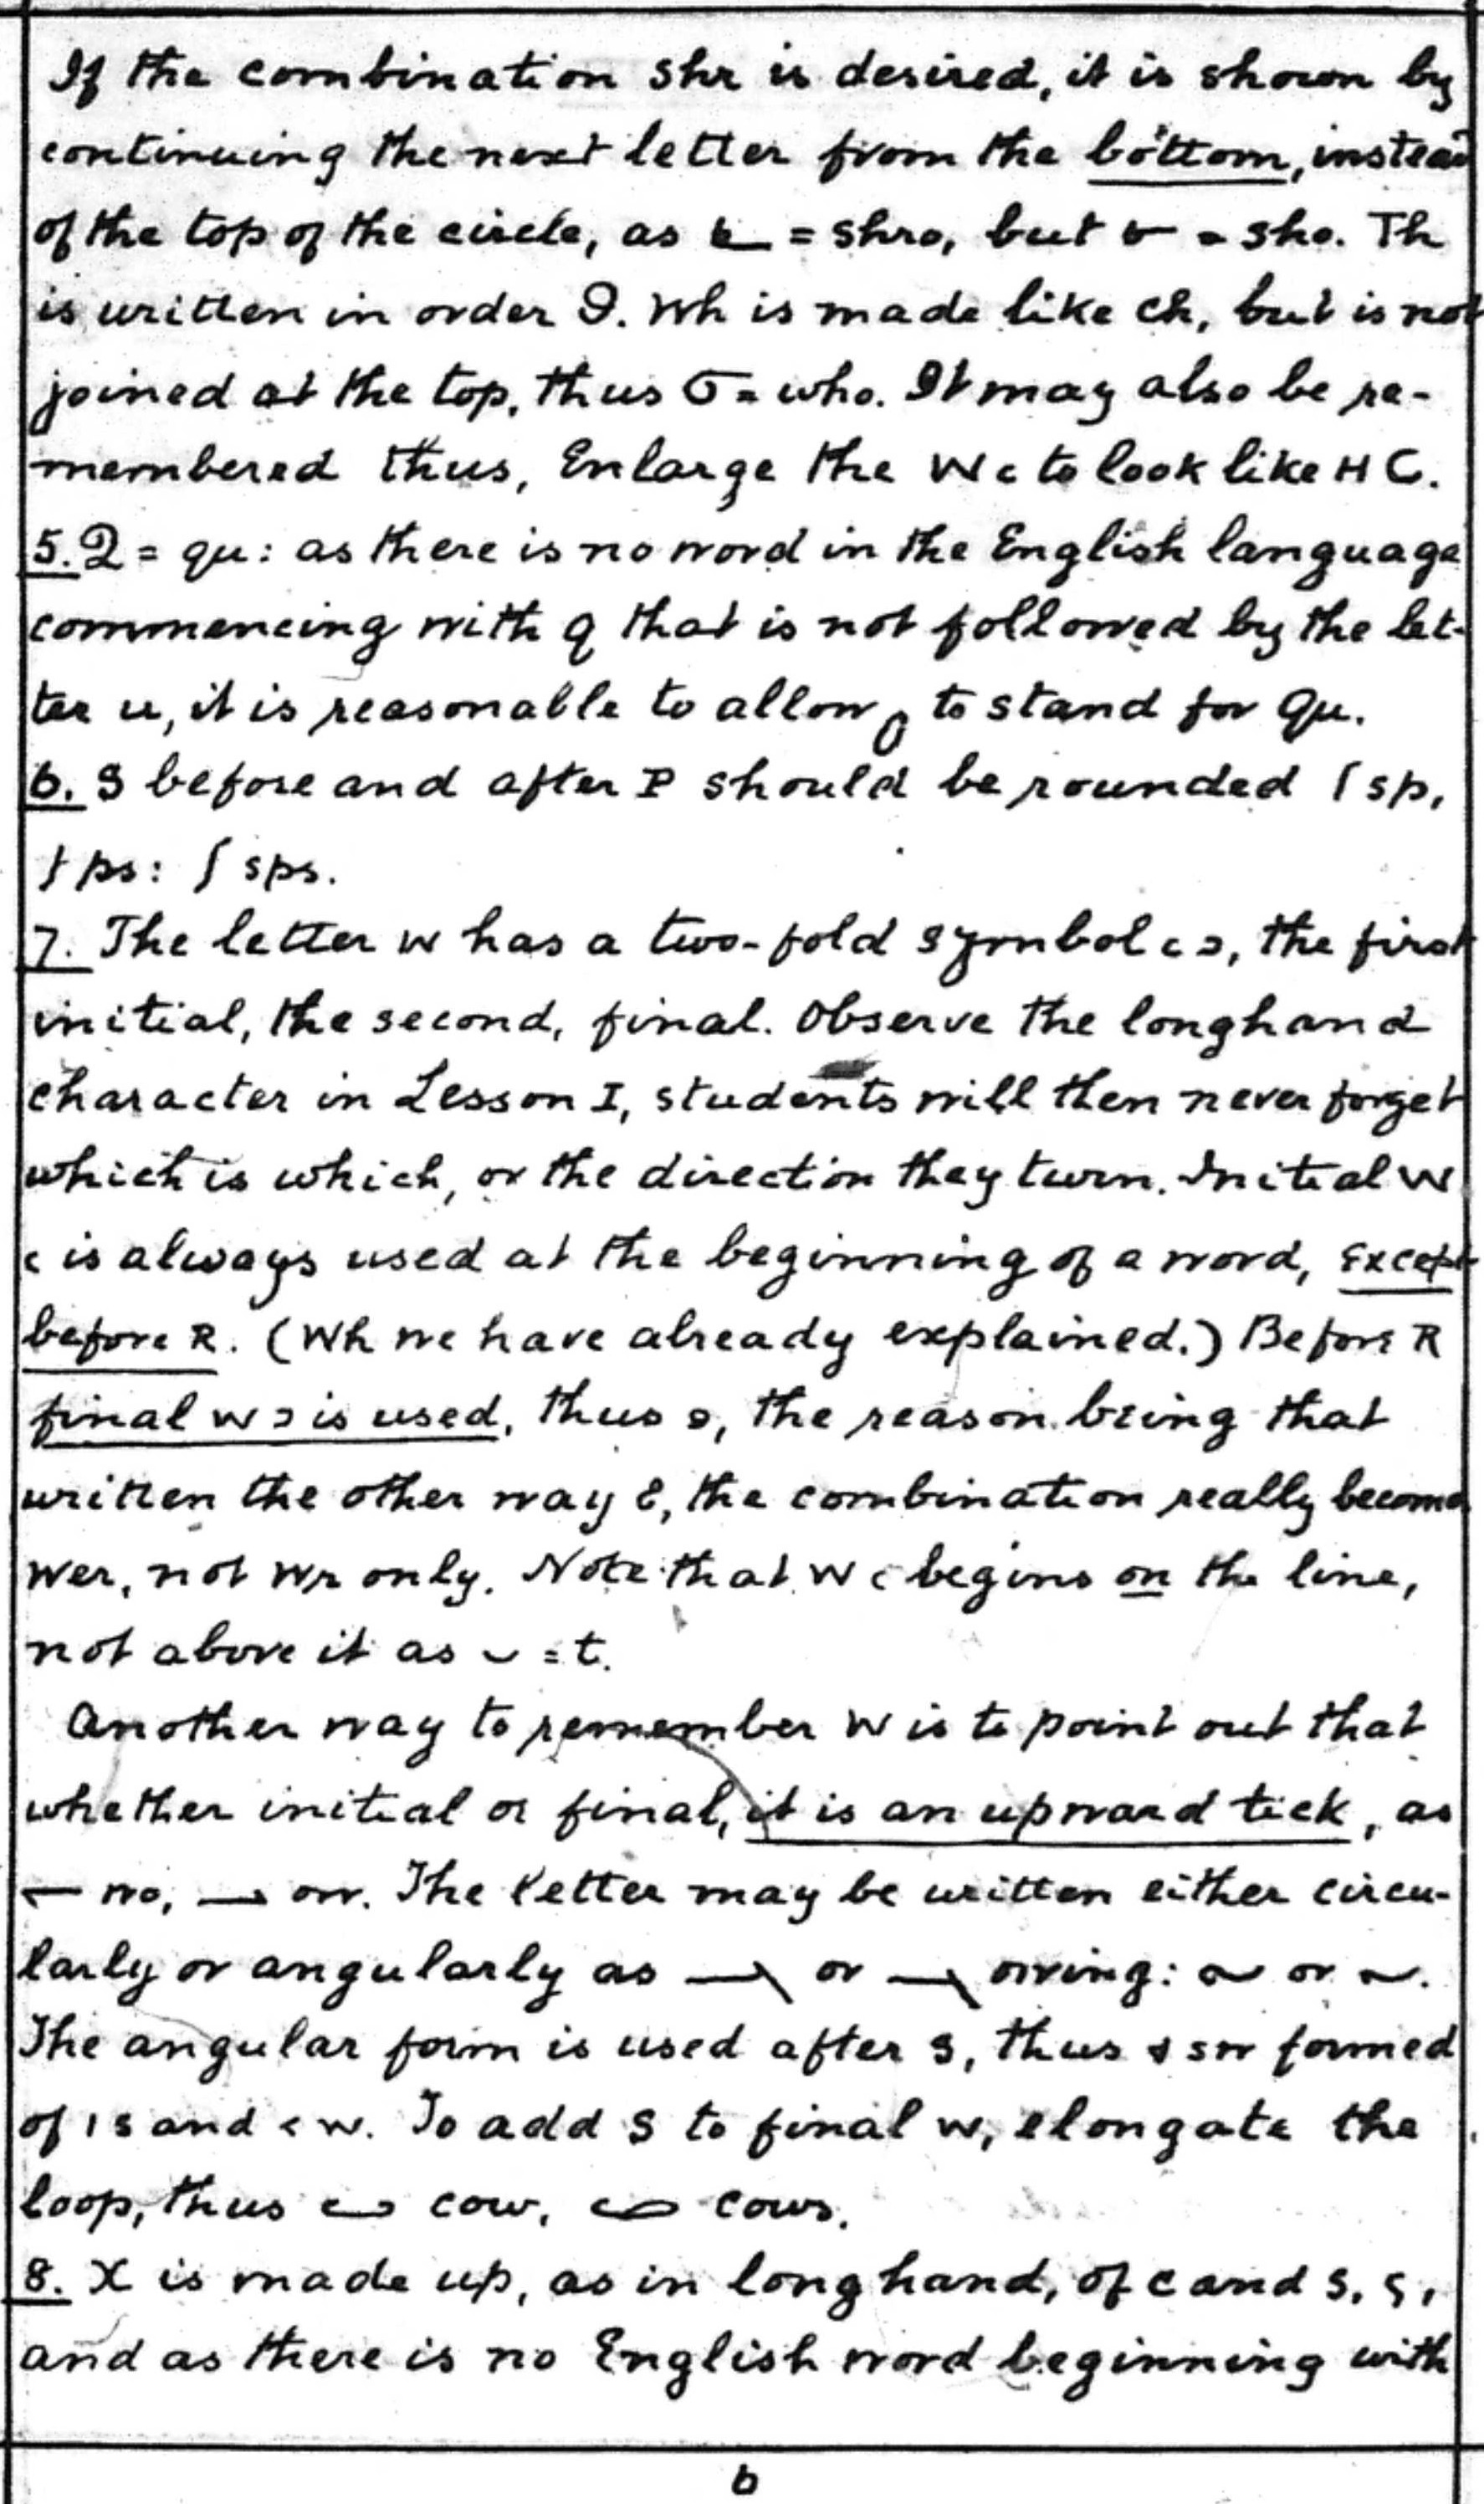 If the combination shr is desired, it is shown by
continuing the next letter from the bottom, instead
of the top of the circle, as = shro, but = sho. Th
is written in order. Wh is made like ch, but is not
joined at the top, thus = who. It may also be re-
membered thus, Enlarge the W c to look like H C.
5. Q = qu: as there is no word in the English language
commencing with q that is not followed by the let-
ter u, it is reasonable to allow to stand for Qu.
6. S before and after P should be rounded sp,
ps: sps.
7. The letter w has a two-fold symbol c ɔ, the first
initial, the second, final. Observe the longhand
character in Lesson I, students will then never forget
which is which, or the direction they turn. Initial W
c is always used at the beginning of a word, except
before R. (Wh we have already explained.) Before R
final w ɔ is used, thus, the reason being that
written the other way, the combination really becomes
wer, not wr only. Note that W c begins on the line,
not above it as ⌣ = t.
Another way to remember W is to point out that
whether initial or final, it is an upward tick, as
wo, ow. The letter may be written either circu-
larly or angularly as or owing: or
The angular form is used after S, thus sw formed
of ı s and < w. To add S to final w, elongate the
loop, thus cow, cows.
8. X is made up, as in longhand, of c and s,
and as there is no English word beginning with
6